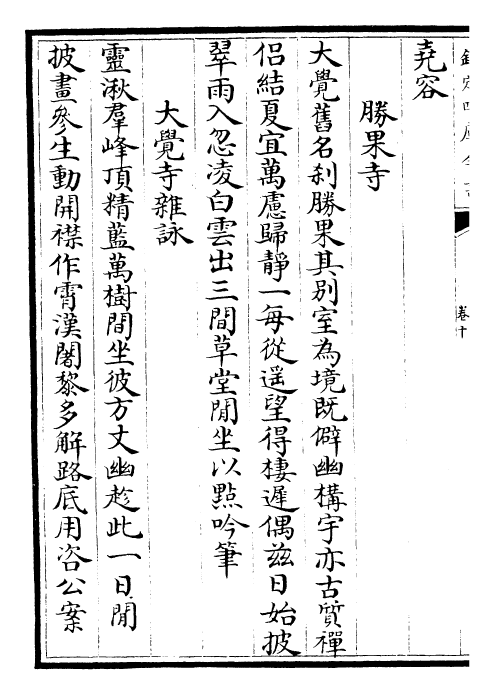 欽定四庫全書
卷十
堯容
勝果寺
大覺舊名刹勝果其别室為境既僻幽構宇亦古質禪
侣結夏宜萬慮歸靜一每從遥望得棲遲偶兹日始披
翠雨入忽凌白雲出三間草堂閒坐以㸃吟筆
大覺寺雜詠
靈湫羣峰頂精藍萬樹間坐彼方丈幽趁此一日閒
披畫參生動開襟作霄漢闍黎多解路底用咨公案